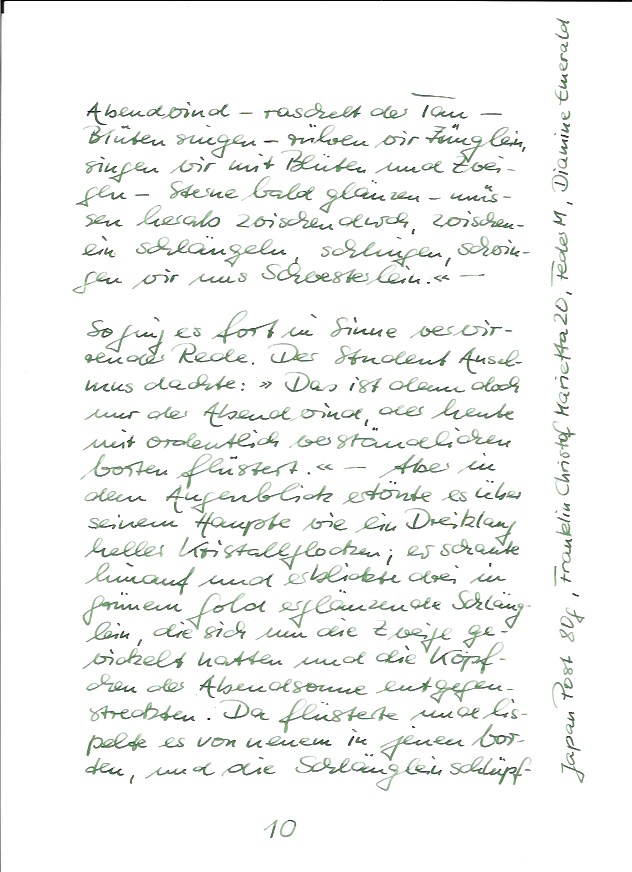 Abendwind – raschelt der Tau –
Blüten singen – rühren wir Zünglein,
singen wir mit Blüten und Zwei-
gen – Sterne bald glänzen – müs-
sen herab zwischendurch, zwischen-
ein schlängeln, schlingen, schwin-
gen wir uns Schwesterlein.« —
So ging es fort in Sinne verwir-
render Rede. Der Student Ansel-
mus dachte: » Das ist denn doch
nur der Abendwind, der heute
mit ordentlich verständlichen
Worten flüstert.« — Aber in
dem Augenblick ertönte es über
seinem Haupte wie ein Dreiklang
heller Kristallglocken; er schaute
hinauf und erblickte drei in
grünem Gold erglänzende Schläng-
lein, die sich um die Zweige ge-
wickelt hatten und die Köpf-
chen der Abendsonne entgegen-
streckten. Da flüsterte und lis-
pelte es von neuem in jenen Wor-
ten, und die Schlänglein schlüpf-
10
Japan Post 80g, Franklin Christof Marietta 20, Feder M, Diamine Emerald